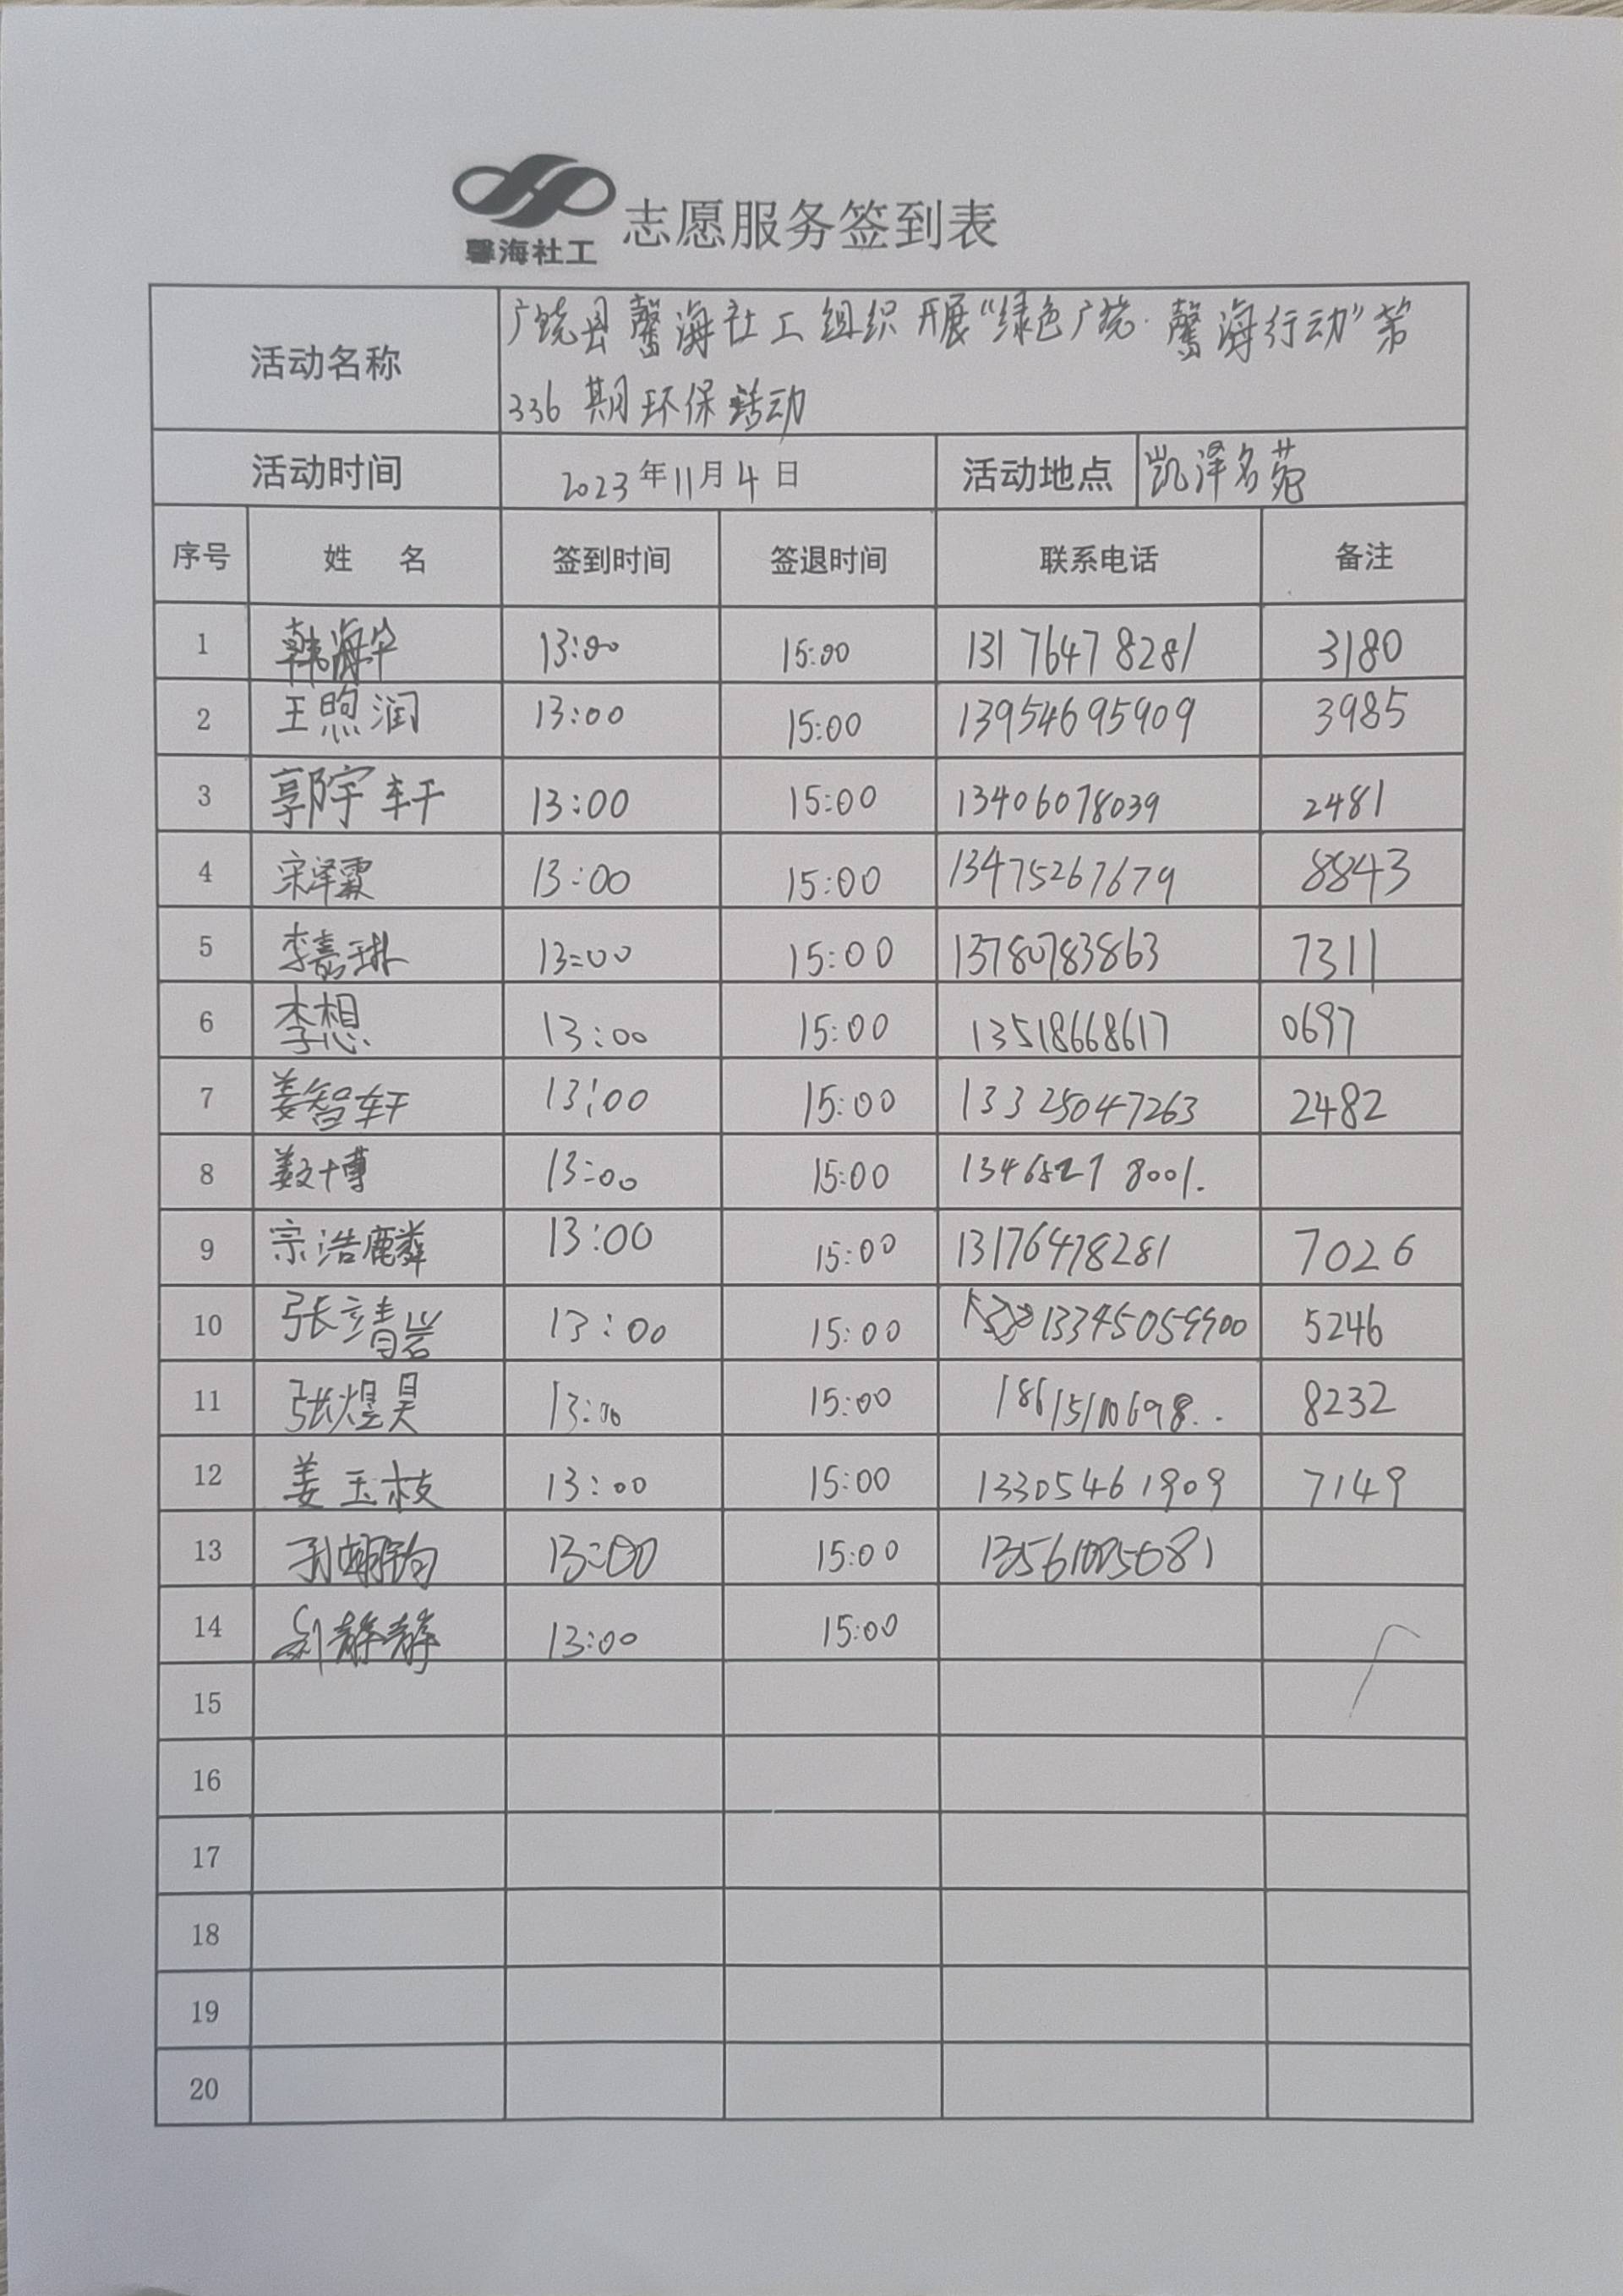 馨海社工
志愿服务签到表
活动名称 广饶县馨海社工组织开展“绿色广饶·馨海行动”第
336期环保活动
活动时间 2023年11月4日 活动地点 凯泽名苑
序号 姓 名 签到时间 签退时间 联系电话 备注
1 韩海华 13:00 15:00 13176478281 3180
2 王煦润 13:00 15:00 13954695909 3985
3 郭宇轩 13:00 15:00 13406078039 2481
4 宋泽霖 13:00 15:00 13475267679 8843
5 李嘉琳 13:00 15:00 13780783863 7311
6 李想 13:00 15:00 13518668617 0697
7 姜智轩 13:00 15:00 13325047263 2482
8 13:00 15:00 13465278001.
9 宗浩麟 13:00 15:00 13176478281 7026
10 张靖岩 13:00 15:00 5246
11 张煜昊 13:00 15:00 8232
12 姜玉枝 13:00 15:00 13305461909 7149
13 13:00 15:00
14 刘静静 13:00 15:00
15
16
17
18
19
20